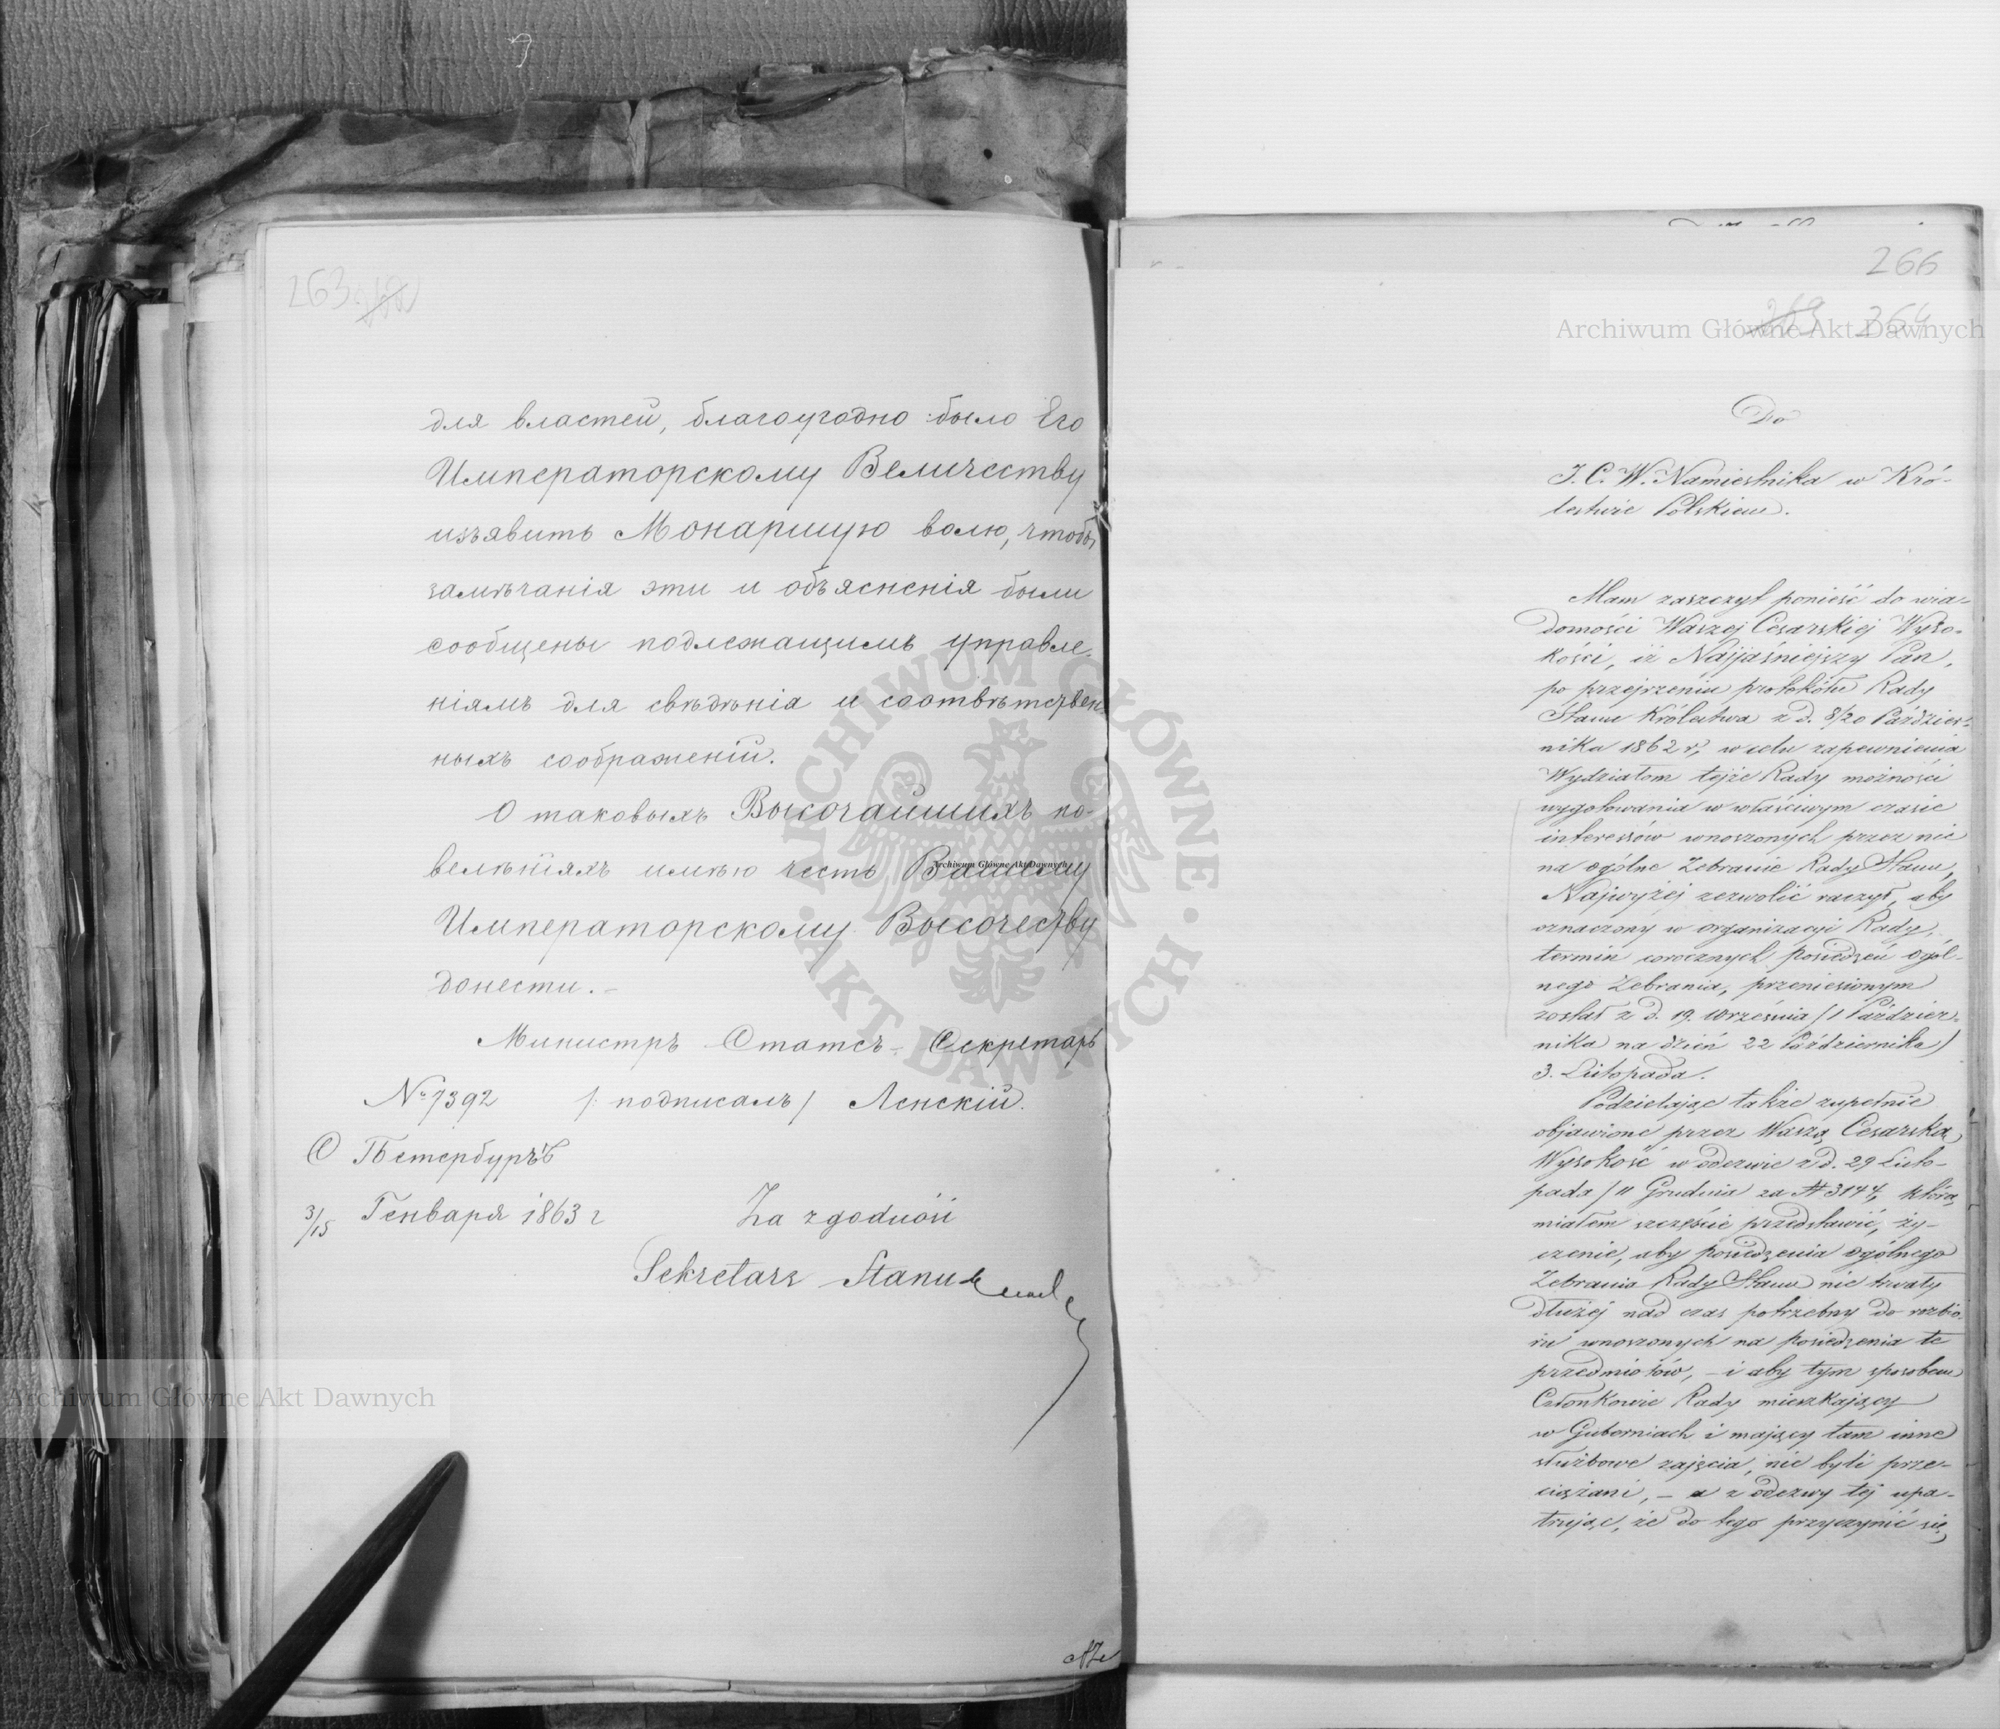 263
для властей, благоугодно было Его
Императорскому Величеству
изъявить Монаршую волю, чтобы
замѣчанія эти и объясненія были
сообщены подлежащимъ управле-
ніямъ для свѣдѣнія и соотвѣтствен
ныхъ соображеній.
О таковыхъ Высочайшихъ по-
велѣніяхъ имѣю честь Вашему
Императорскому Высочеству
донести.-
Министръ Статсъ-Секретарь
№ 7392 /:подписалъ/ Ленскій.
С Петербургъ
3/15 Генваря 1863 г
Za zgodność
Sekretarz Stanu
266
264
Do
J. C. W. Namiestnika w Kró-
lestwie Polskiem.
Mam zaszczyt ponieść do wia-
domości Waszej Cesarskiej Wyso-
kości, iż Najjaśniejszy Pan,
po przejrzeniu protokółu Rady
Stanu Królestwa z d. 8/20 Paździer-
nika 1862 r, w celu zapewnienia
Wydziałom tejże Rady możności
wygotowania w właściwym czasie
interessów wnoszonych przez nie
na ogólne Zebranie Rady Stanu,
Najwyżej zezwolić raczył, aby
oznaczony w organizacyi Rady,
termin corocznych posiedzeń ogól-
nego Zebrania, przeniesionym
został z d. 19. Września /1 Paździer-
nika na dzień 22 Października/
3. Listopada.
Podzielając także zupełnie
objawione przez Waszą Cesarską
Wysokość w odezwie z d. 29 Listo-
pada / 11 Grudnia za № 3144, którą
miałem szczęście przedstawić, ży-
czenie, aby posiedzenia ogólnego
Zebrania Rady Stanu nie trwały
dłużej nad czas potrzebny do rozbio-
ru wnoszonych na posiedzenia te
przedmiotów, - i aby tym sposobem
Członkowie Rady mieszkający
w Guberniach i mający tam inne
służbowe zajęcia, nie byli prze-
ciążani, - a z odezwy tej upa-
trując, że do tego przyczynić się
Archiwum Główne Akt Dawnych
Archiwum Główne Akt Dawnych
Archiwum Główne Akt Dawnych
ARCHIWUM GŁÓWNE · AKT DAWNYCH ·